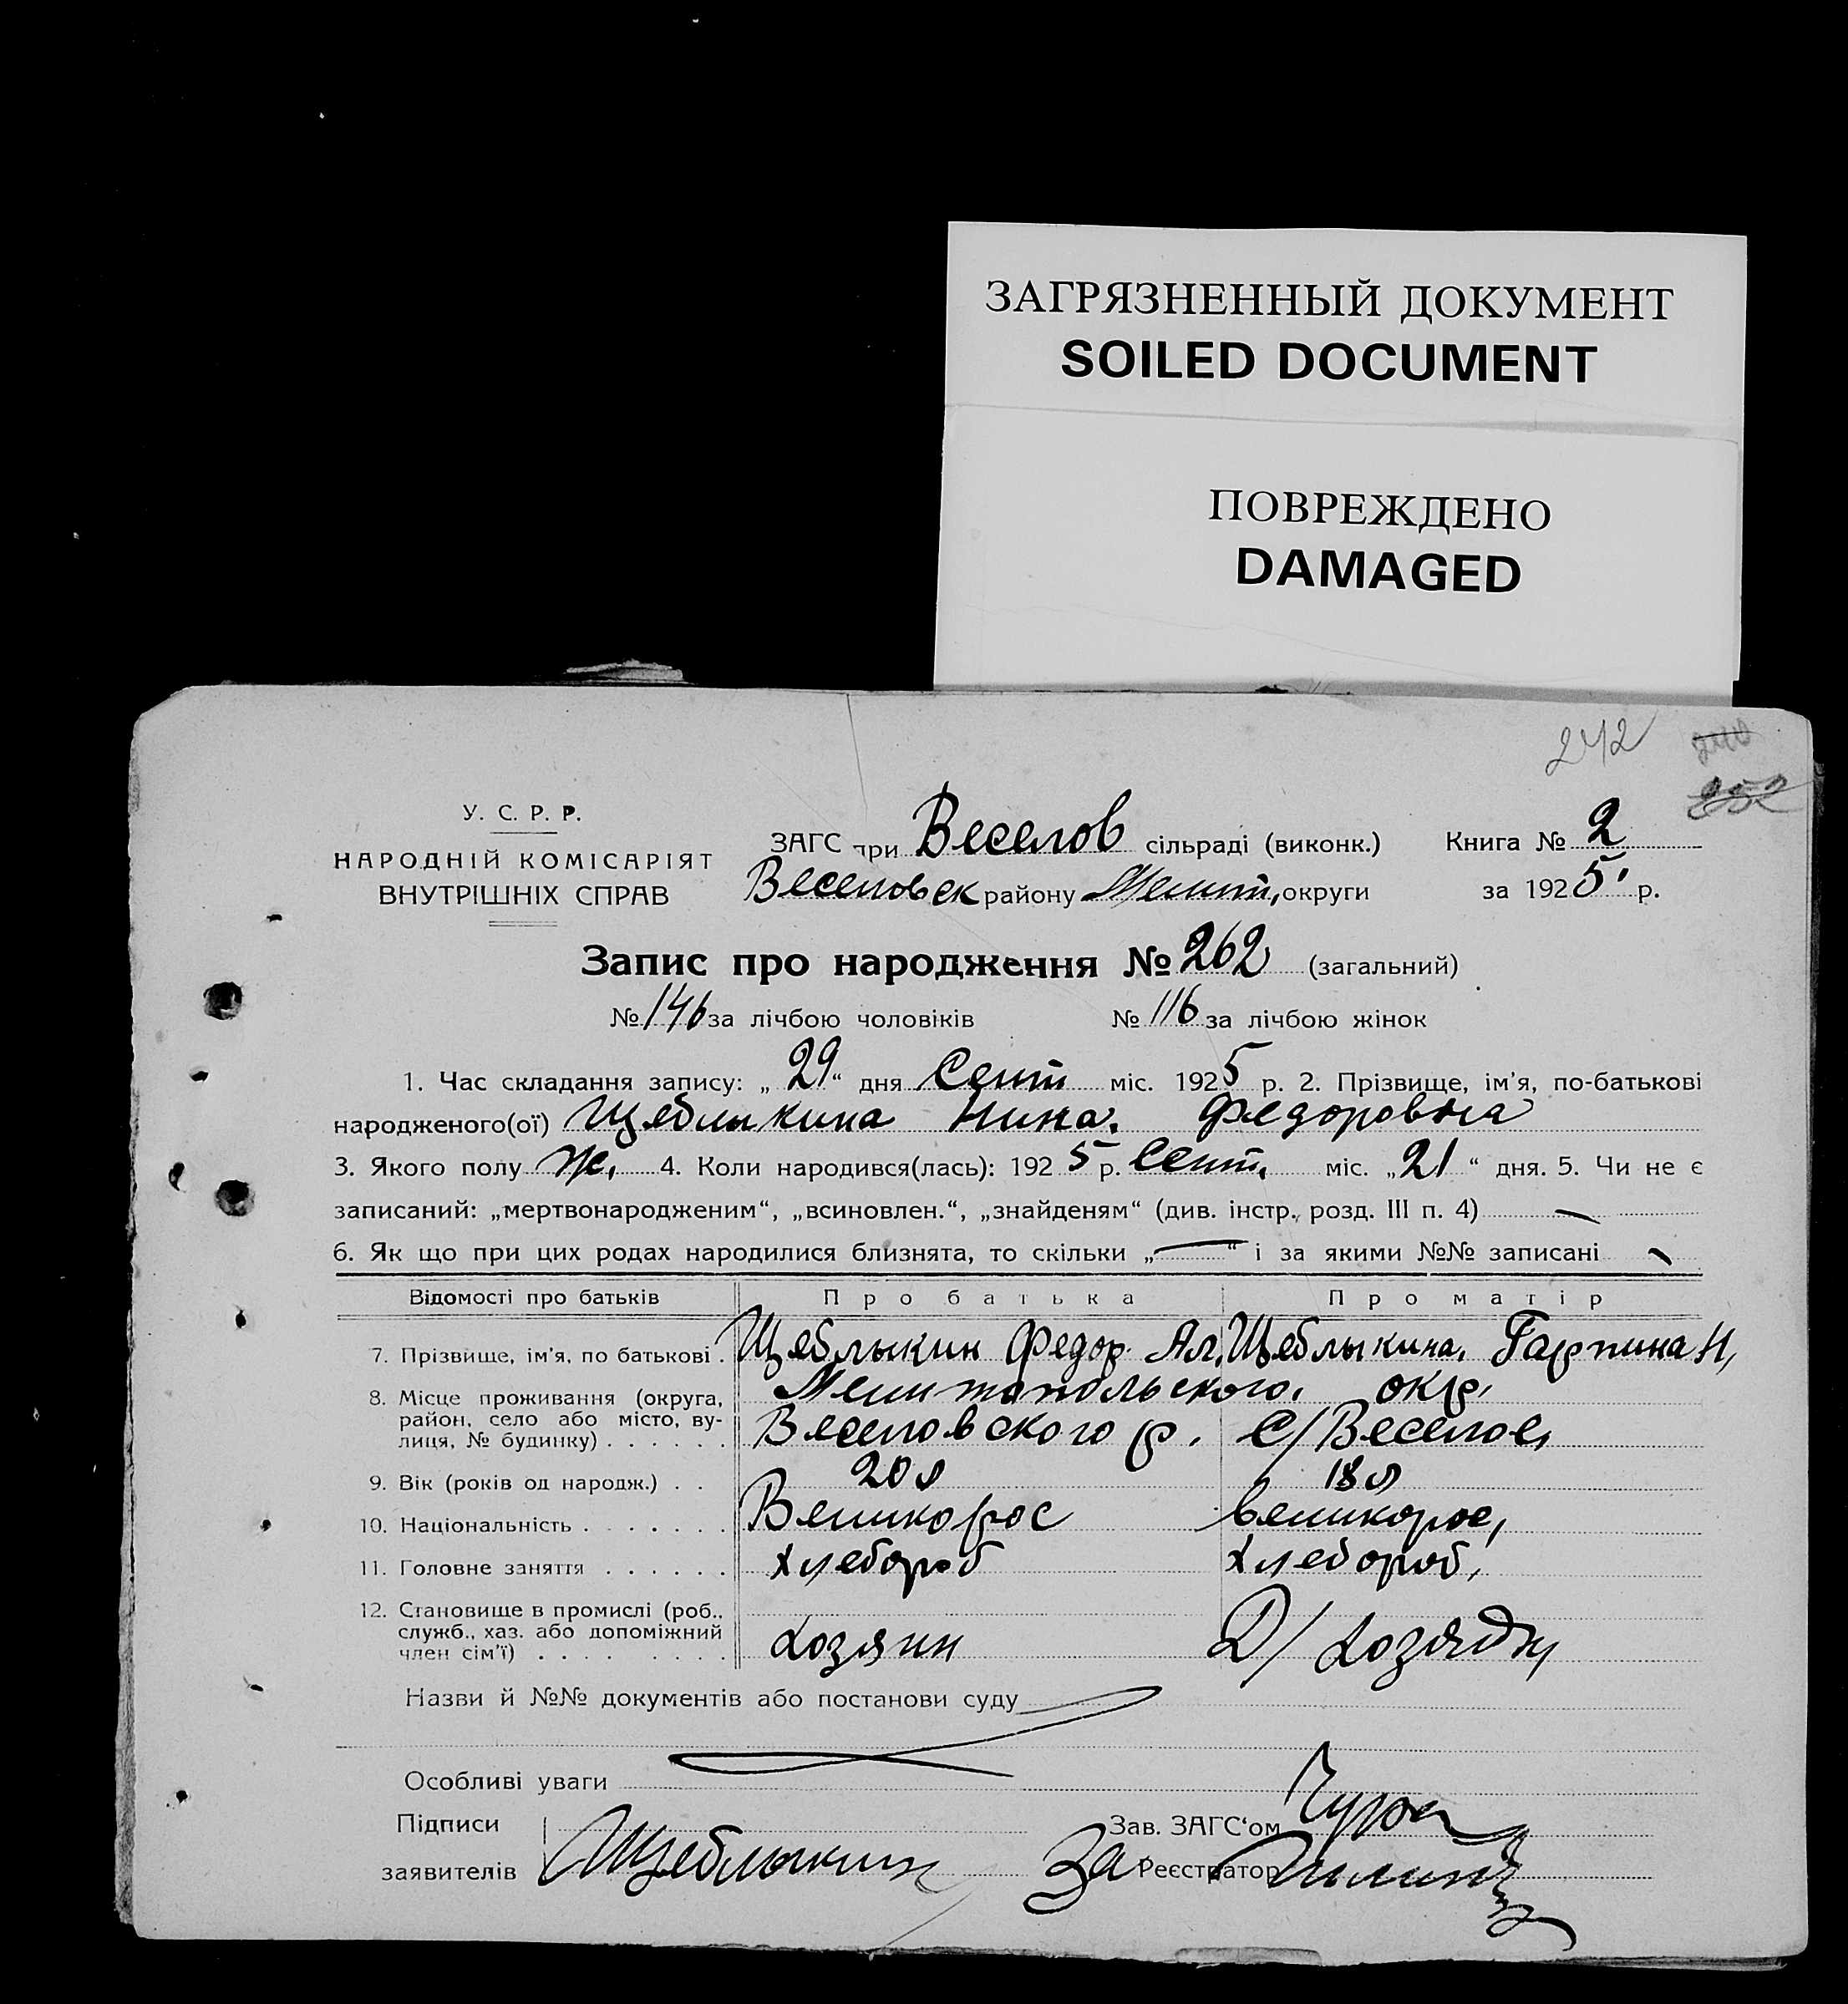 ЗАГРЯЗНЕННЫЙ ДОКУМЕНТ
SOILED DOCUMENT
ПОВРЕЖДЕНО
DAMAGED
242
252
У. С. Р. Р.
НАРОДНІЙ КОМІСАРІЯТ
ВНУТРІШНІХ СПРАВ
ЗАГС при Веселов сільраді (виконк.) Книга № 2
Веселовск району Мелит, округи за 1925 р.
Запис про народження № 262 (загальний)
№ 146 за лічбою чоловіків № 116 за лічбою жінок
1. Час складання запису: „29“ дня Сент міс. 1925 р. 2. Прізвище, ім'я, по-батькові
народженого(ої) Щеблыкина Нина. Федоровна
3. Якого полу Ж. 4. Коли народився(лась): 1925 р. Сент. міс. „21“ дня. 5. Чи не є
записаний: „мертвонародженим“, „всиновлен.“, „знайденям“ (див. інстр. розд. III п. 4) —
6. Як що при цих родах народилися близнята, то скільки „—“ і за якими №№ записані —
Відомості про батьків Про батька Про матір
7. Прізвище, ім'я, по батькові . Щеблыкин Федор. Ал. Щеблыкина, Гарпина Н,
8. Місце проживання (округа, Мелитопольского. окр.
район, село або місто, ву- Веселовского р. С/Веселое,
лиця, № будинку) . . . . . .
9. Вік (років од народж.) . . 20 л 18 л
10. Національність . . . . . . . Великорос великорос,
11. Головне заняття . . . . . . Хлебороб хлебороб,
12. Становище в промислі (роб.,
служб., хаз. або допоміжний хозяин Д/хозяйк,
член сім'ї) . . . . . . . .
Назви й №№ документів або постанови суду
Особливі уваги
Підписи Зав. ЗАГС'ом
заявителів Щеблыкин За Реєстратор